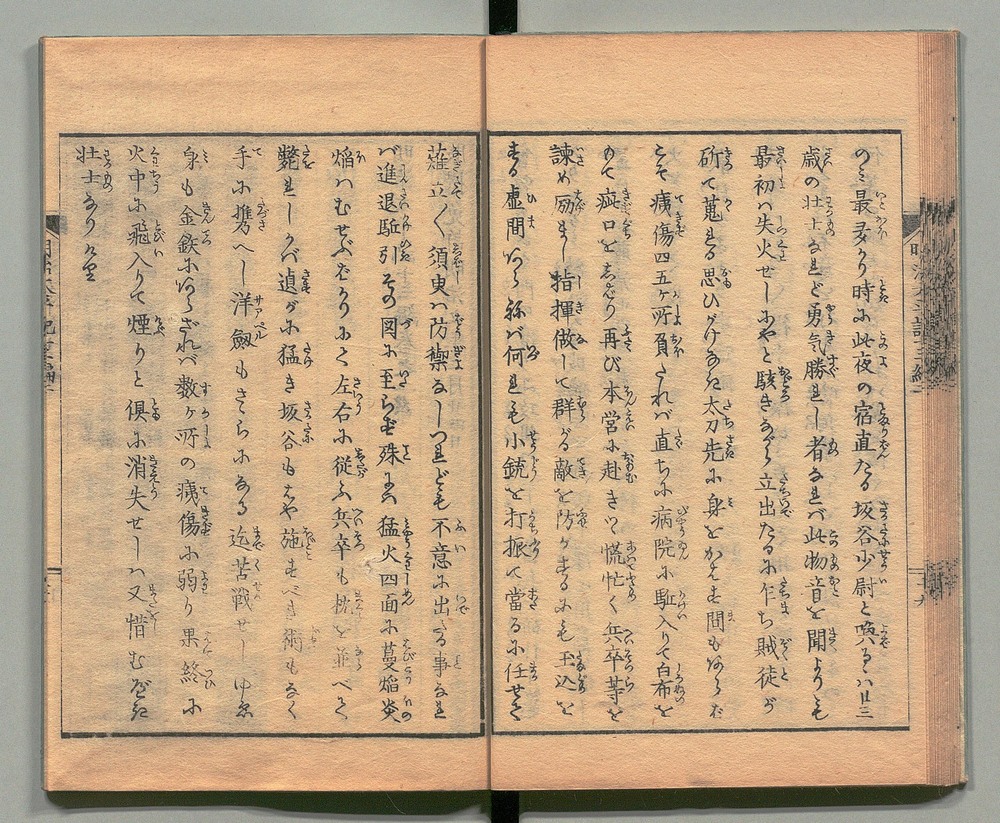 のミ最多かり時に此夜の宿直たる坂谷少尉と喚るハ廿三
歳の壮士なれど勇気勝れし者なれバ此物音を聞よりも
最初ハ失火せしにやと駭きながら立出たるに乍ち賊徒が
斫て蒐れる思ひがけなき太刀先に身をかはす間もあらバ
こそ痍傷四五ケ所負たれバ直ちに病院に駈入りて白布を
もて疵口をしばり再び本営に赴きつゝ慌忙く兵卒等を
諫め励まし指揮做して群がる敵を防ぎけるにも玉込を
する虚間あらねバ何れも小銃を打振て當るに任せて
薙立く須臾ハ防禦なしつれども不意に出たる事なれ
バ進退駈引その図に至らず殊に猛火四面に蔓焔炎
焔ハむせぶばかりにて左右に従ふ兵卒も枕を並べて
斃れしかバ遉がに猛き坂谷もはや施すべき術もなく
手に携へし洋劔もさらになる迄苦戦せしゆゑ
身も金鉄にあらざれバ数ケ所の痍傷に弱り果終に
火中に飛入りて煙りと倶に消失せしハ又惜むべき
壮士なりけり